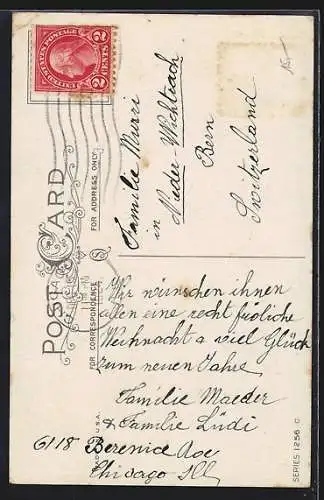 UNITED STATES POSTAGE
2 CENTS 2
15.-
POST CARD
FOR ADDRESS ONLY
FOR CORRESPONDENCE
Familie Murri
in Nieder-Wichtrach
Bern
Switzerland
Wir wünschen ihnen
allen eine recht fröliche
Weihnacht & viel Glück
zum neuen Jahre
Familie Maeder
& Familie Lüdi
6118 Berenice Ave
Chicago Ill
U.S.A.
SERIES 1256 C